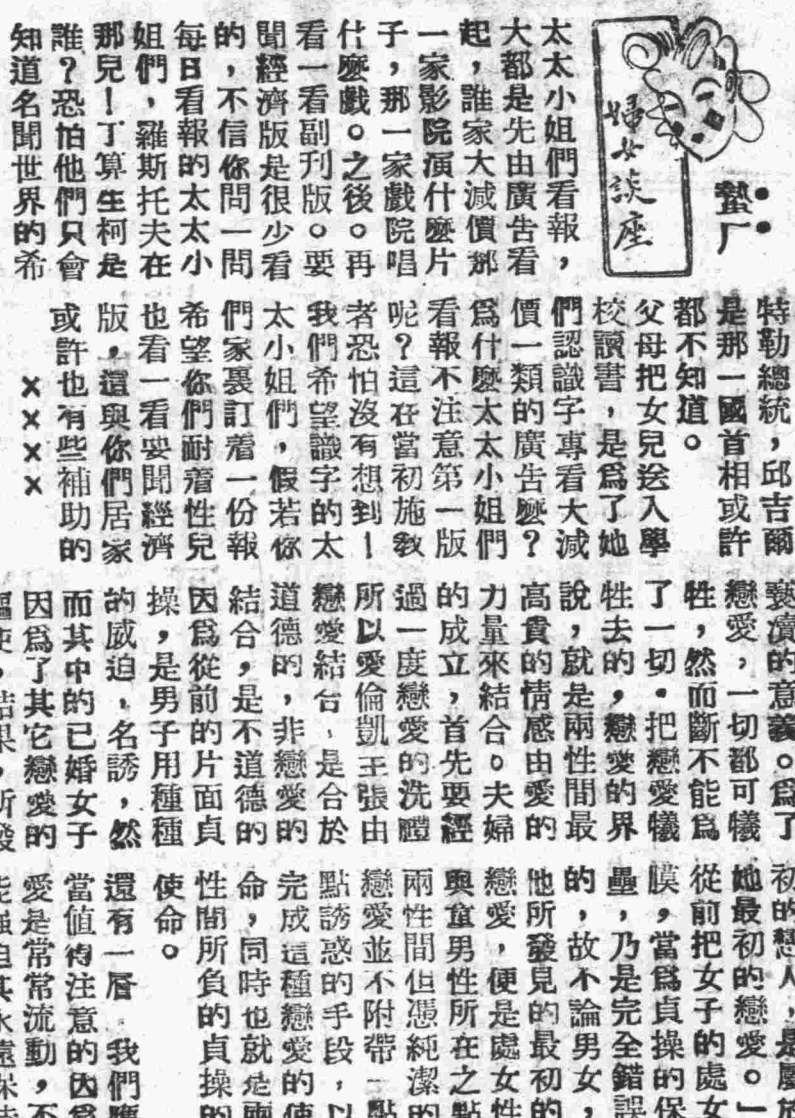 婦女談座
蟄厂
太太小姐們看報，
大都是先由廣告看
起，誰家大減價那
一家影院演什麼片
子，那一家戲院唱
什麼戲。之後。再
看一看副刊版。要
聞經濟版是很少看
的，不信你問一問
每日看報的太太小
姐們，羅斯托夫在
那兒！丁算生柯是
誰？恐怕他們只會
知道名聞世界的希
特勒總統，邱吉爾
是那一國首相或許
都不知道。
父母把女兒送入學
校讀書，是爲了她
們認識字專看大減
價一類的廣告麼？
爲什麼太太小姐們
看報不注意第一版
呢？這在當初施教
者恐怕沒有想到！
我們希望識字的太
太小姐們，假若你
們家裏訂着一份報
希望你們耐着性兒
也看一看要聞經濟
版，還與你們居家
或許也有些補助的
××××
褻瀆的意義。爲了
戀愛，一切都可犧
牲，然而斷不能爲
了一切。把戀愛犧
牲去的，戀愛的界
說，就是兩性間最
高貴的情感由愛的
力量來結合。夫婦
的成立，首先要經
過一度戀愛的洗禮
所以愛倫凱王張由
戀愛結合，是合於
道德的，非戀愛的
結合，是不道德的
因爲從前的片面貞
操，是男子用種種
的威迫，名誘，然
而其中的已婚女子
因爲了其它戀愛的
使，結果，所發
初的戀人，是屬於
她最初的戀愛。
從前把女子的處女
膜，當爲貞操的保
壘，乃是完全錯誤
的，故不論男女，
他所發見的最初的
戀愛，便是處女性
與童男性所在之點
兩性間但憑純潔的
戀愛並不附帶一點
點誘惑的手段，以
完成這種戀愛的使
命，同時也就是兩
性間所負的貞操的
使命。
還有一層，我們應
當值得注意的因爲
愛是常常流動，不
能強迫其永遠保持